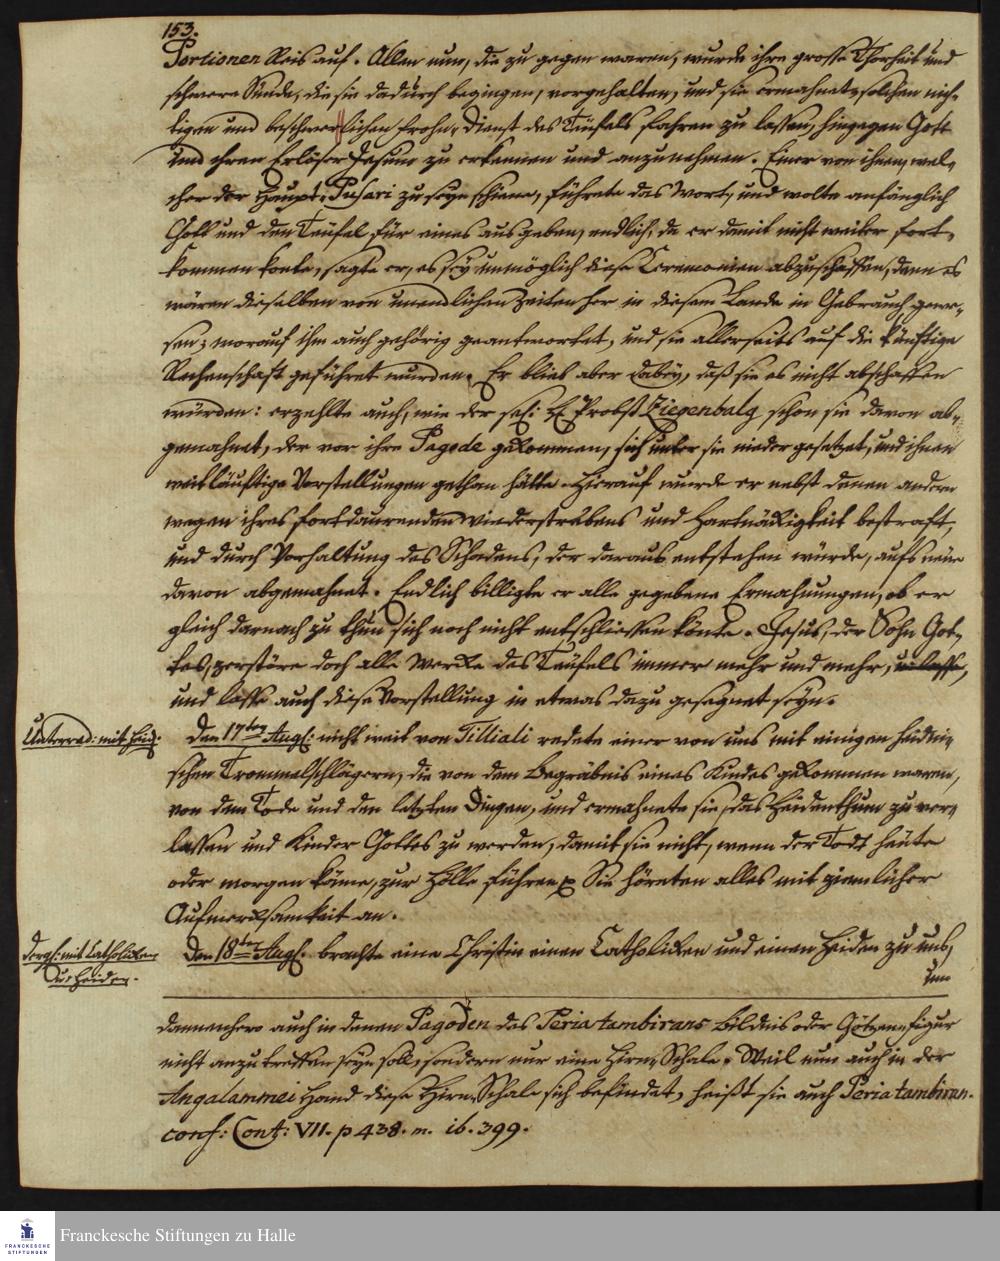 153.
Portionen Reis auf. Allen nun, die zu gegen waren, wurde ihre grosse Thorheit und
schwere Sünde, die sie dadurch begingen, vorgehalten, und sie ermahnet, solchen nich-
tigen und beschwerlichen Frohn-Dienst des Teüfels fahren zu lassen, hingegen Gott
und ihren Erlöser Jesum zu erkennen und anzunehmen. Einer von ihnen, wel-
cher der Haupt-Pusari zu seyn schiene, führete das Wort, und wolte anfänglich
Gott und den Teüfel für eines ausgeben, endlich, da er damit nicht weiter fort-
kommen konte, sagte er, es sey unmöglich diese Ceremonien abzuschaffen, denn es
wären dieselben von unendlichen Zeiten her in diesem Lande in Gebrauch gewe-
sen; worauf ihm auch gehörig geantwortet, und sie allerseits auf die künftige
Rechenschaft geführet wurden. Er blieb aber dabey, daß sie es nicht abschaffen
würden: erzehlte auch, wie der sel. H. Probst Ziegenbalg schon sie davon ab-
gemahnet, der vor ihre Pagode gekommen, sich unter sie nieder gesetzet, und ihnen
weitläuftige Vorstellungen gethan hätte. Hierauf wurde er nebst denen andern
wegen ihres fortdaurenden Wiederstrebens und Hartnäckigkeit bestraft,
und durch Vorhaltung des Schadens, der daraus entstehen würde, aufs neüe
davon abgemahnet. Endlich billigte er alle gegebene Ermahnungen, ob er
gleich darnach zu thun sich noch nicht entschliessen könte. Jesus, der Sohn Got-
tes, zerstöre doch alle Werke des Teüfels immer mehr und mehr,
und lasse auch diese Vorstellung in etwas dazu gesegnet seyn.
Unterred: mit Heid:
Den 17ten Aug: nicht weit von Tilliali redete einer von uns mit einigen heidni-
schen Trommelschlägern, die von dem Begräbnis eines Kindes gekommen waren,
von dem Tode und den letzten Dingen, und ermahnete sie, das Heidenthum zu ver-
lassen und Kinder Gottes zu werden, damit sie nicht, wenn der Todt heüte
oder morgen käme, zur Hölle führen p Sie höreten alles mit ziemlicher
Aufmerksamkeit an.
dergl: mit Catholiken
u: Heiden.
Den 18ten Aug. brachte eine Christin einen Catholiken und einen Heiden zu uns,
um
dannenhero auch in denen Pagoden des Periatambirans Bildnis oder Götzen-Figur
nicht anzutreffen seyn soll, sondern nur eine Hirn-Schale. Weil nun auch in der
Angalammei Hand diese Hirn-Schale sich befindet, heißt sie auch Periatambiran.
conf: Cont: VII. p 438. m. ib. 399.
Franckesche Stiftungen zu Halle
FRANCKESCHE
STIFTUNGEN